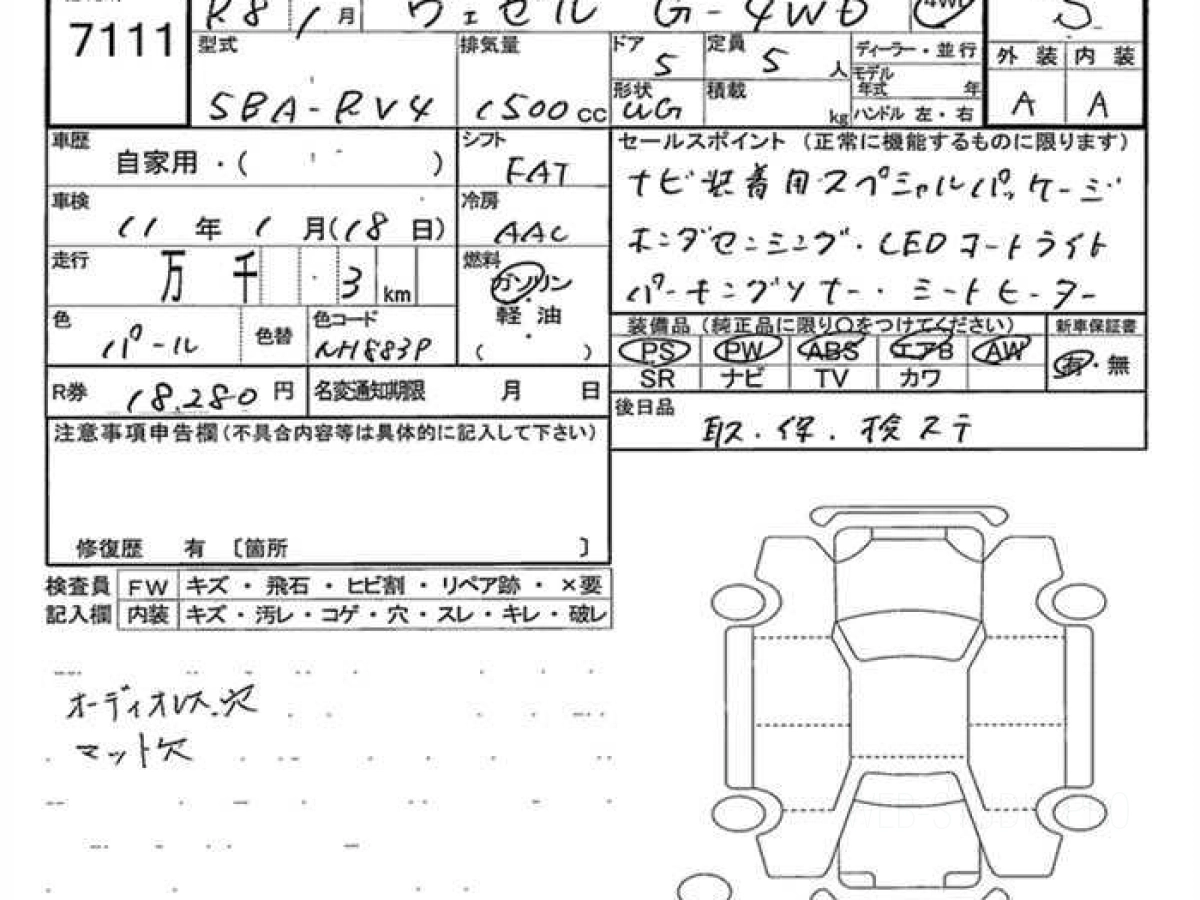 R8 1月 ヴェゼル G-4WD 4WD S
7111
型式 5BA-RV4
排気量 1500cc
ドア 5
定員 5人
ディーラー・並行
モデル年式 年
外装 A
内装 A
形状 UG
積載 kg
ハンドル 左・右
車歴 自家用・( )
シフト FAT
セールスポイント (正常に機能するものに限ります)
ナビ装着用スペシャルパッケージ
ホンダセンシング・LEDオートライト
パーキングソナー・シートヒーター
車検 11年1月(18日)
冷房 AAC
走行 万千 3km
燃料 ガソリン・軽油・( )
色 パール
色替
色コード NH883P
装備品 (純正品に限り○をつけてください) 新車保証書
PS PW ABS エアB AW 有・無
SR ナビ TV カワ
R券 18,280円
名変通知期限 月 日
後日品 取・保・検ステ
注意事項申告欄(不具合内容等は具体的に記入して下さい)
修復歴 有 〔箇所 〕
検査員 FW キズ・飛石・ヒビ割・リペア跡・×要
記入欄 内装 キズ・汚レ・コゲ・穴・スレ・キレ・破レ
オーディオレス.穴
マット欠